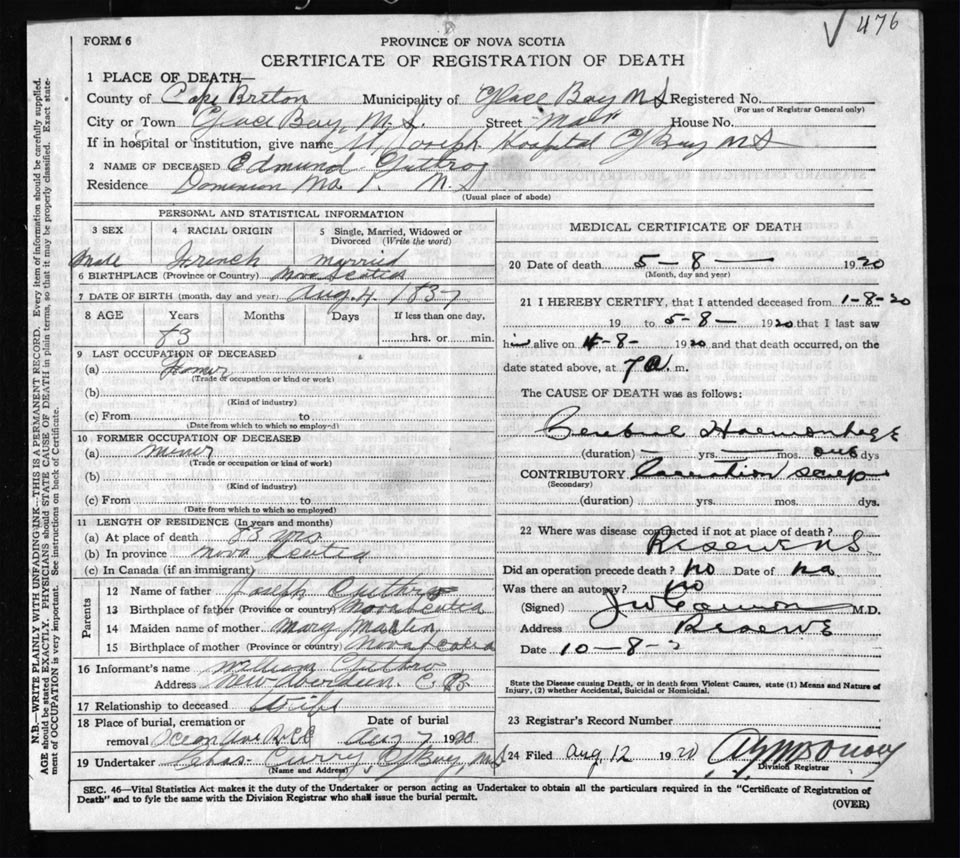 √ 476
FORM 6
PROVINCE OF NOVA SCOTIA
CERTIFICATE OF REGISTRATION OF DEATH
N.B.—WRITE PLAINLY WITH UNFADING INK—THIS IS A PERMANENT RECORD. Every item of information should be carefully supplied.
AGE should be stated EXACTLY. PHYSICIANS should STATE CAUSE OF DEATH in plain terms, so that it may be properly classified. Exact state-
ment of OCCUPATION is very important. See instructions on back of Certificate.
1 PLACE OF DEATH—
County of Cape Breton Municipality of Glace Bay N S Registered No.
(For use of Registrar General only)
City or Town Glace Bay, N. S. Street Main House No.
If in hospital or institution, give name St Joseph Hospital G Bay N S
2 NAME OF DECEASED Edmund Guthro
Residence Dominion No 1. N. S
(Usual place of abode)
PERSONAL AND STATISTICAL INFORMATION
3 SEX 4 RACIAL ORIGIN 5 Single, Married, Widowed or Divorced (Write the word)
Male French Married
6 BIRTHPLACE (Province or Country) Nova Scotia
7 DATE OF BIRTH (month, day and year) Aug. 4. 1837
8 AGE Years Months Days If less than one day,
83 ......hrs. or......min.
9 LAST OCCUPATION OF DECEASED
(a)
(Trade or occupation or kind or work)
(b)
(Kind of industry)
(c) From to
(Date from which to which so employed)
10 FORMER OCCUPATION OF DECEASED
(a) Miner
(Trade or occupation or kind of work)
(b)
(Kind of industry)
(c) From to
(Date from which to which so employed)
11 LENGTH OF RESIDENCE (In years and months)
(a) At place of death 83 yrs
(b) In province Nova Scotia
(c) In Canada (if an immigrant)
Parents
12 Name of father Joseph Guthro
13 Birthplace of father (Province or country) Nova Scotia
14 Maiden name of mother Mary Martin
15 Birthplace of mother (Province or country) Nova Scotia
16 Informant's name William Guthro
Address New Aberdeen. C B
17 Relationship to deceased
18 Place of burial, cremation or Date of burial
removal Ocean Ave Aug 7 1920
19 Undertaker Chas Curry, G Bay, N S
(Name and Address)
MEDICAL CERTIFICATE OF DEATH
20 Date of death 5 – 8 — 1920
(Month, day and year)
21 I HEREBY CERTIFY, that I attended deceased from 1-8-20
19 to 5-8- 1920 that I last saw
him alive on 4-8- 1920 and that death occurred, on the
date stated above, at 7 a. m.
The CAUSE OF DEATH was as follows:
Cerebral Haemorrhage
(duration) — yrs. — mos. dys
CONTRIBUTORY
(Secondary)
(duration) yrs. mos. dys.
22 Where was disease contracted if not at place of death?
Reserve N S
Did an operation precede death? No Date of na
Was there an autopsy? No
(Signed) M.D.
Address Reserve
Date 10-8-
State the Disease causing Death, or in death from Violent Causes, state (1) Means and Nature of
Injury, (2) whether Accidental, Suicidal or Homicidal.
23 Registrar's Record Number
24 Filed Aug 12 1920
Division Registrar
SEC. 46—Vital Statistics Act makes it the duty of the Undertaker or person acting as Undertaker to obtain all the particulars required in the "Certificate of Registration of
Death" and to fyle the same with the Division Registrar who shall issue the burial permit.
(OVER)